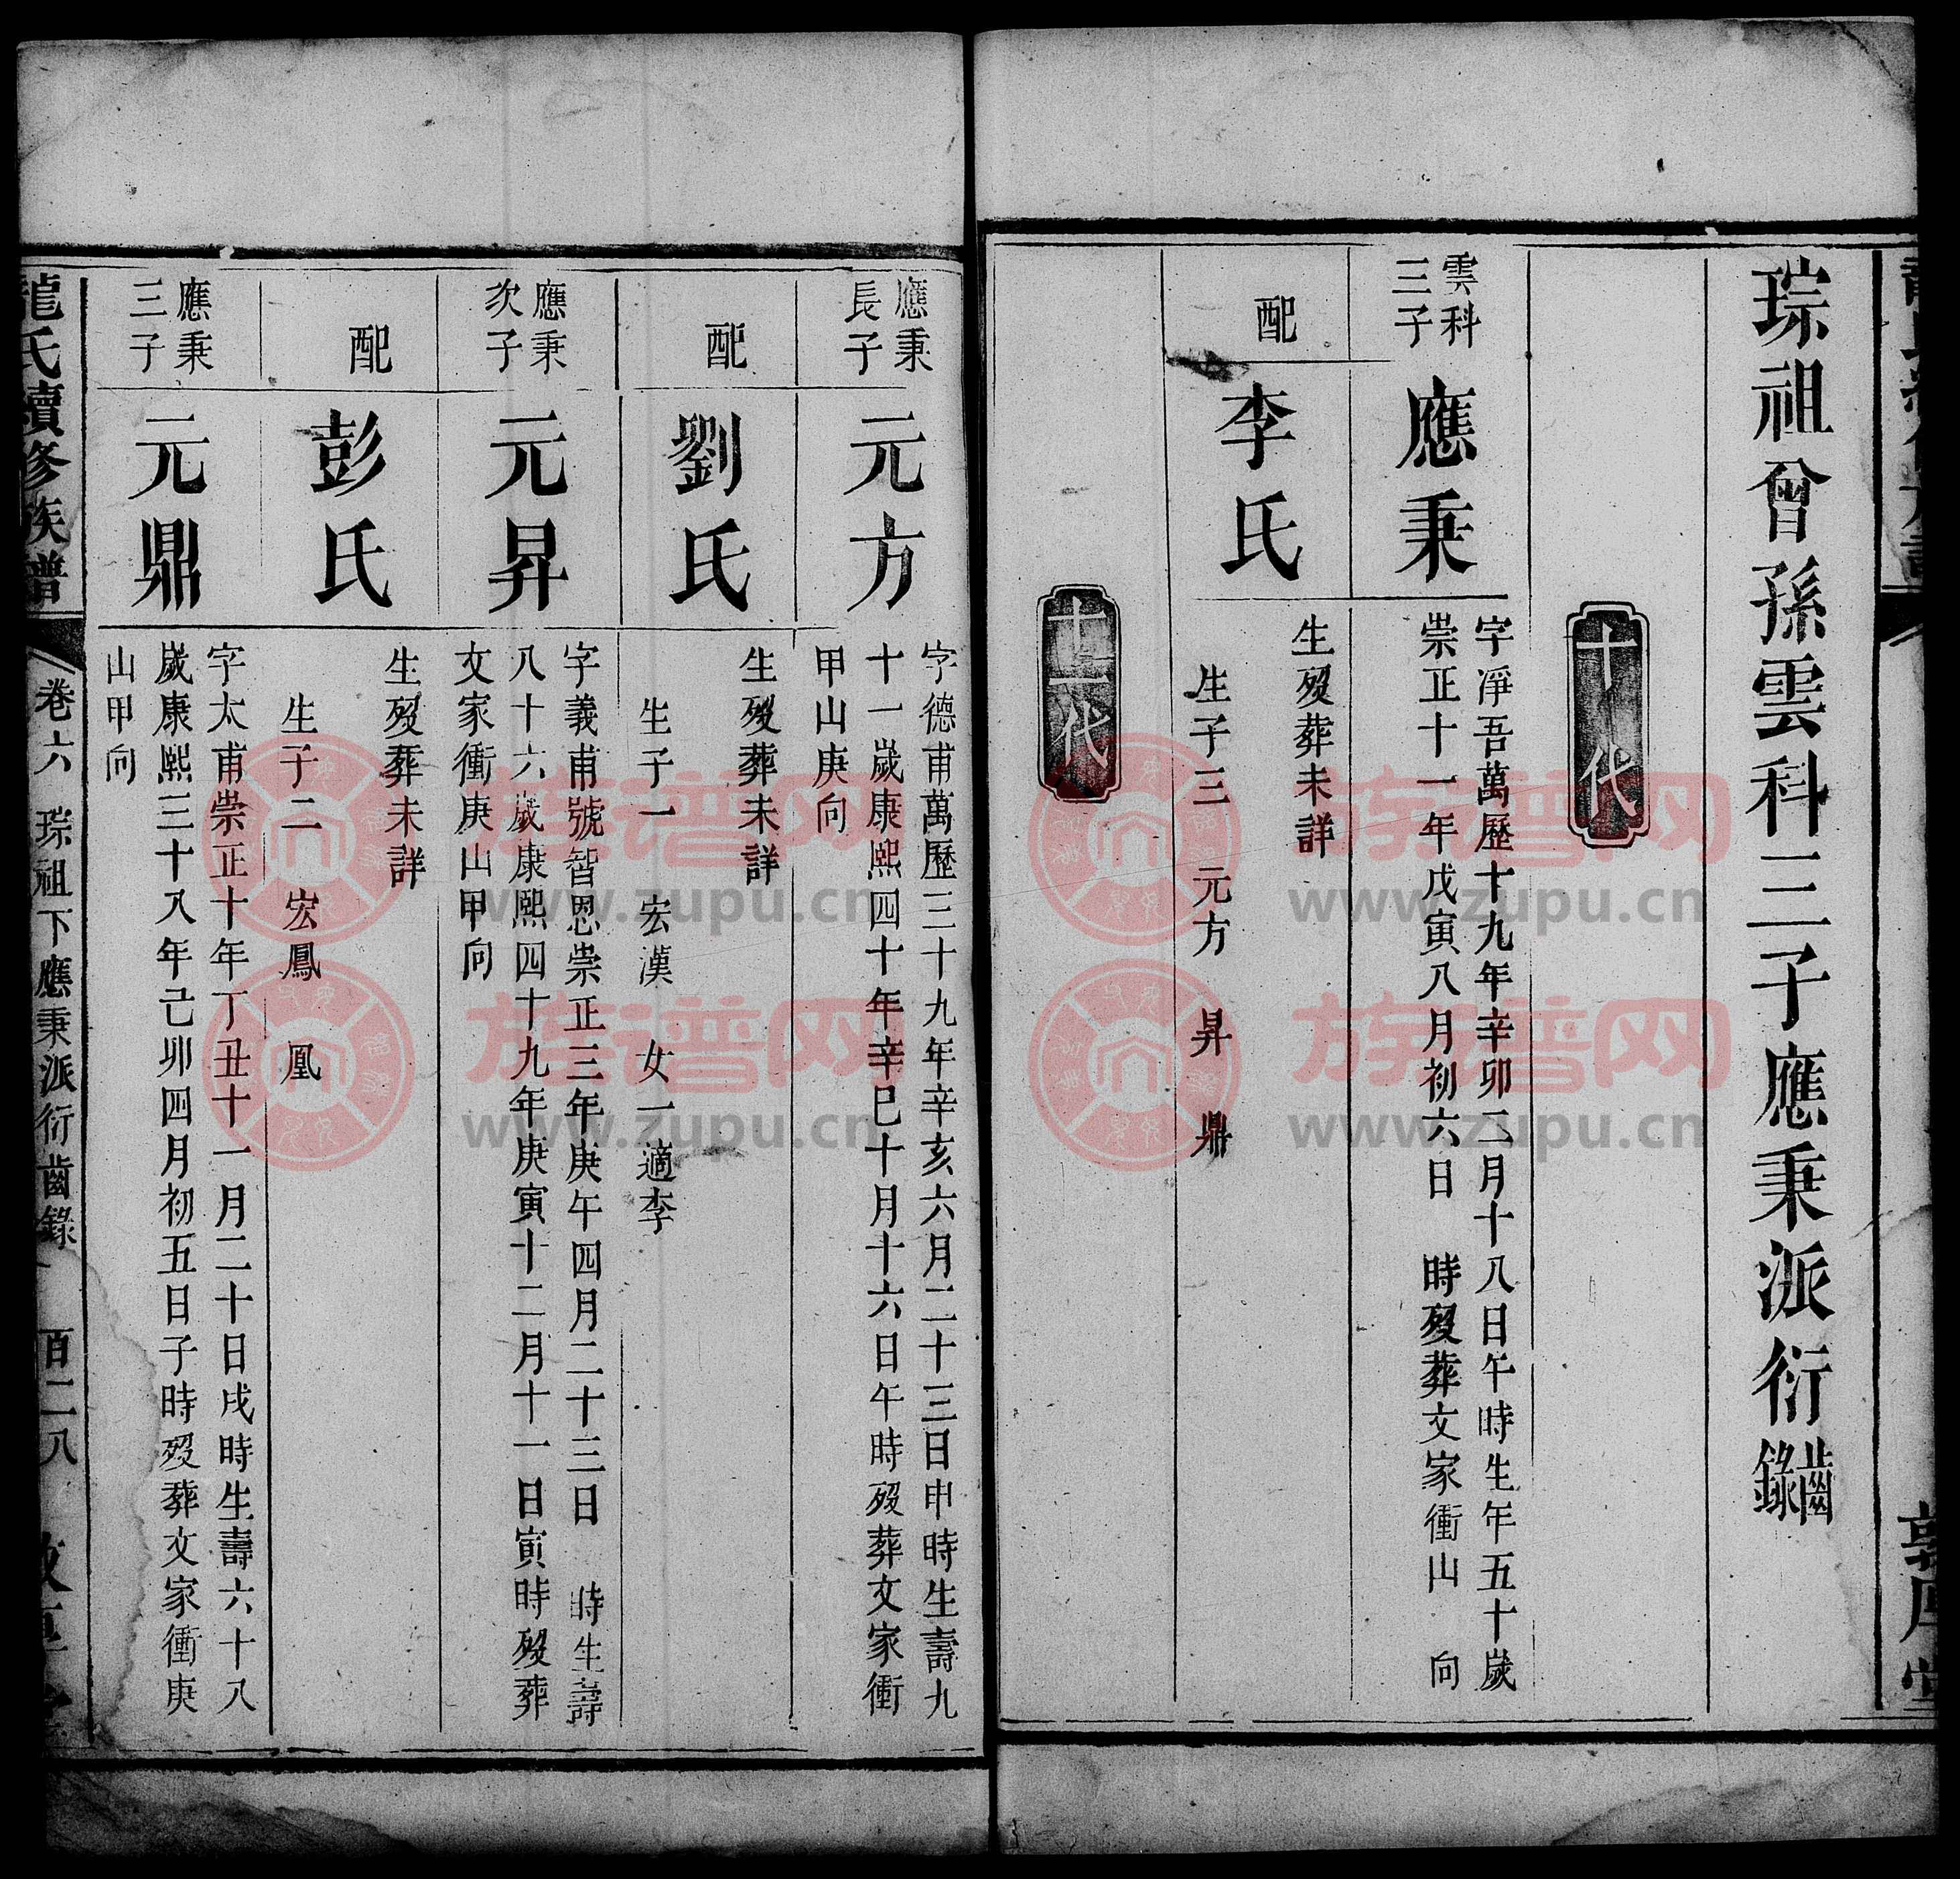 琮祖曾孫雲科三子應秉派衍齒錄
十代
雲科
三子
應秉
字凈吾萬歷十九年辛卯二月十八日午時生年五十歲
崇正十一年戊寅八月初六日 時歿葬文家衝山 向
配
李氏
生歿葬未詳
生子三 元方 昇 鼎
十一代
應秉
長子
元方
字德甫萬歷三十九年辛亥六月二十三日申時生壽九
十一歲康熙四十年辛巳十月十六日午時歿葬文家衝
甲山庚向
配
劉氏
生歿葬未詳
生子一 宏漢 女一適李
應秉
次子
元昇
字義甫號智恩崇正三年庚午四月二十三日 時生壽
八十六歲康熙四十九年庚寅十二月十一日寅時歿葬
文家衝庚山甲向
配
彭氏
生歿葬未詳
生子二 宏鳳 凰
應秉
三子
元鼎
字太甫崇正十年丁丑十一月二十日戌時生壽六十八
歲康熙三十八年己卯四月初五日子時歿葬文家衝庚
山甲向
龍氏續修族譜
卷六 琮祖下應秉派衍齒錄
百二八
敦厚堂
族谱网
www.zupu.cn
族谱网
www.zupu.cn
族谱网
www.zupu.cn
族谱网
www.zupu.cn